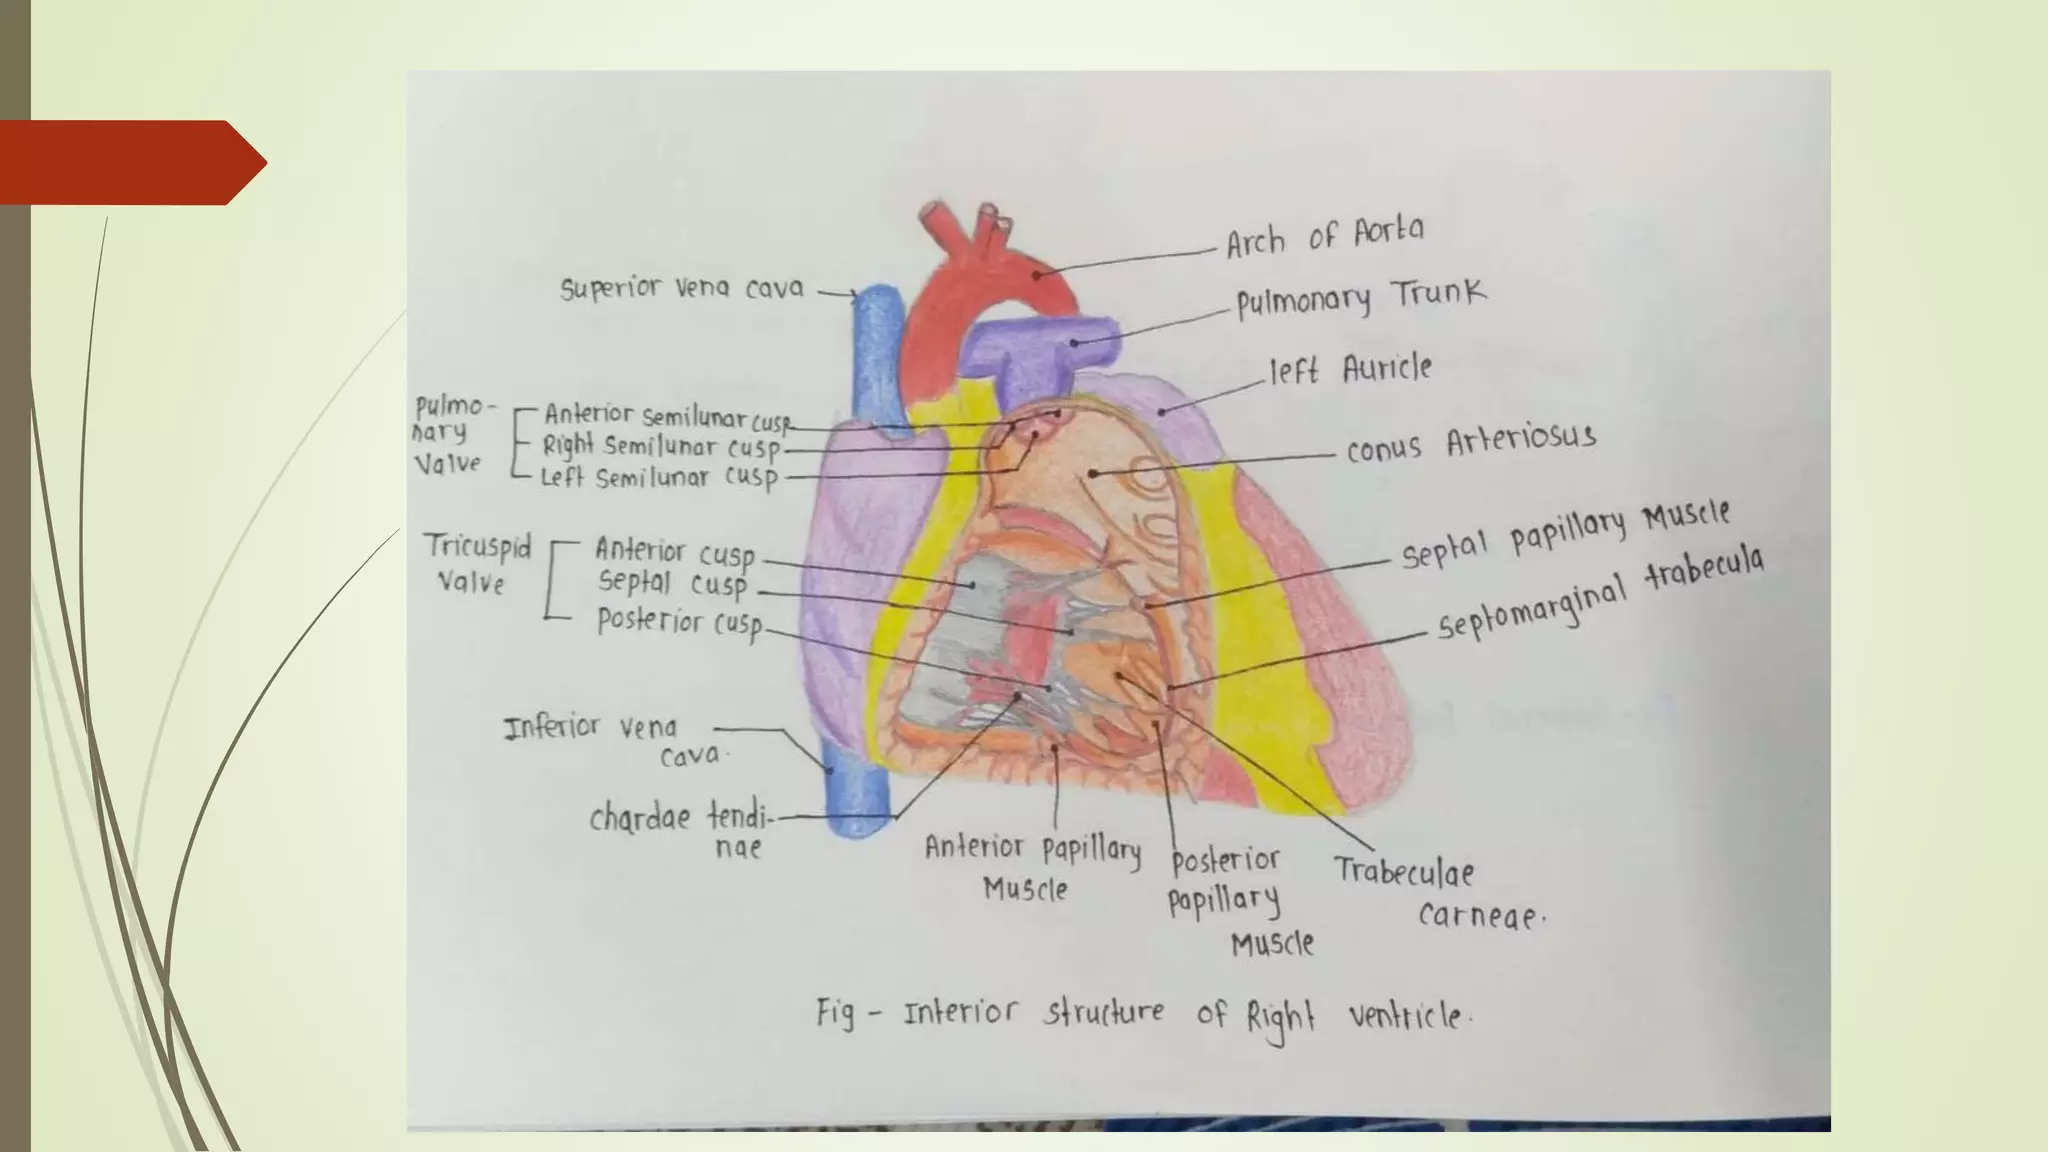 Arch of Aorta
Superior vena cava
Pulmonary Trunk
left Auricle
Pulmo-
nary
Valve
Anterior Semilunar cusp
Right Semilunar cusp
Left Semilunar cusp
conus Arteriosus
Septal papillary Muscle
Tricuspid
Valve
Anterior cusp
Septal cusp
Posterior cusp
Septomarginal trabecula
Inferior vena
cava.
chardae tendi-
nae
Anterior papillary
Muscle
Posterior
Papillary
Muscle
Trabeculae
carneae.
Fig - Interior structure of Right ventricle.